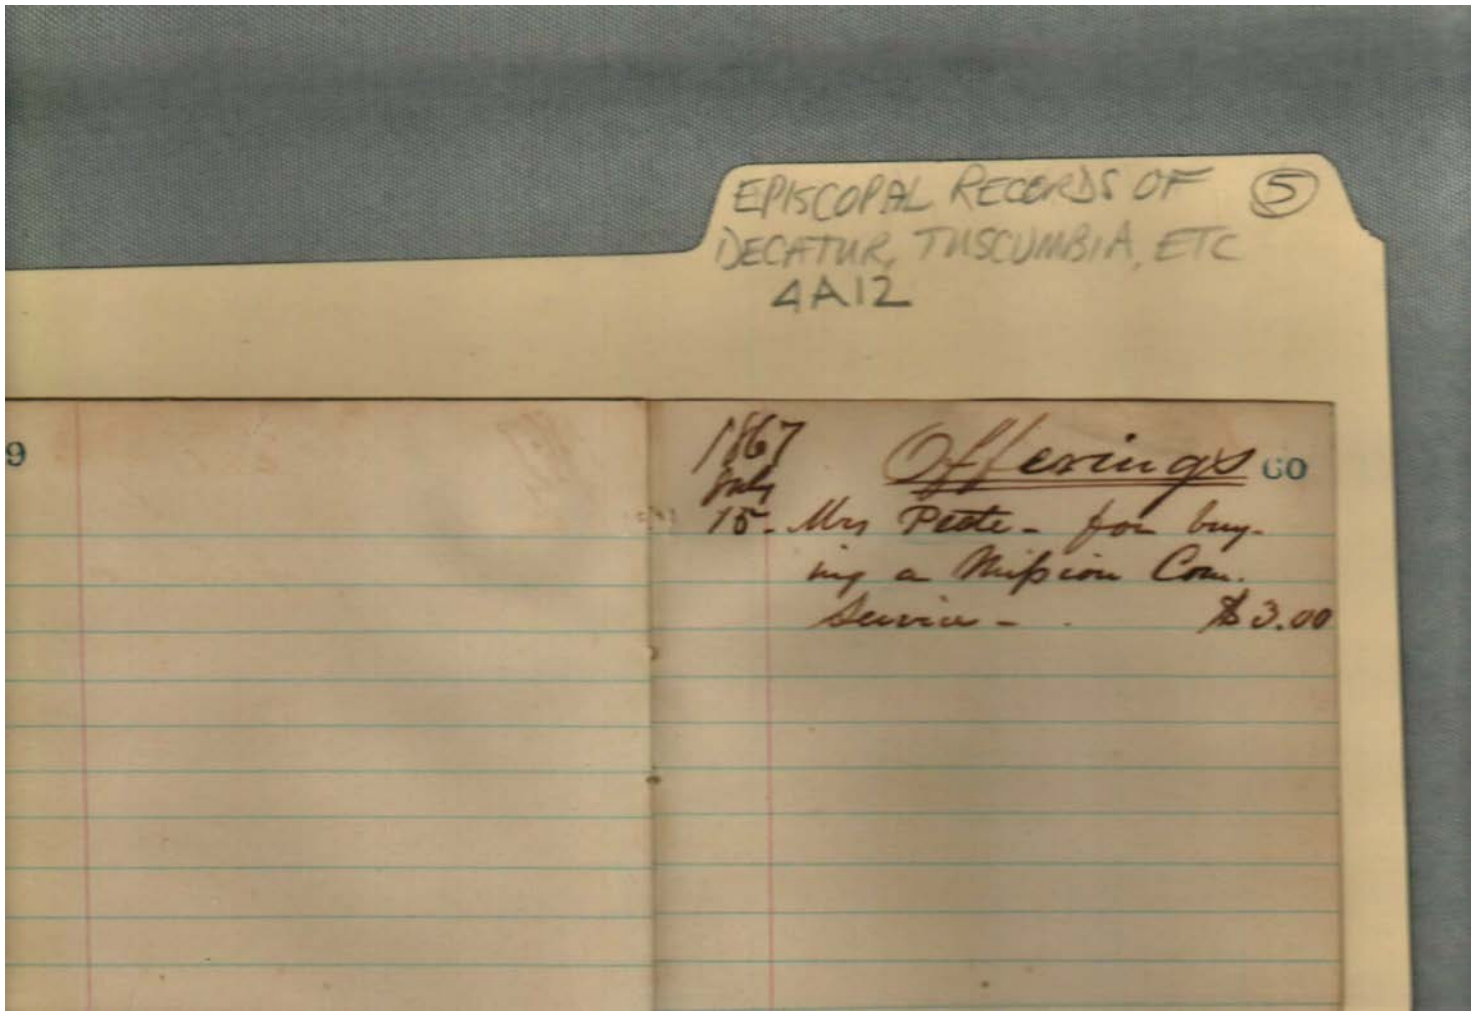 EPISCOPAL RECORDS OF 5
DECATUR, TUSCUMBIA, ETC
4A12
9
1867 Offerings 60
July
15. Mrs Peete - for buy-
ing a Mission Com.
Service - . $3.00